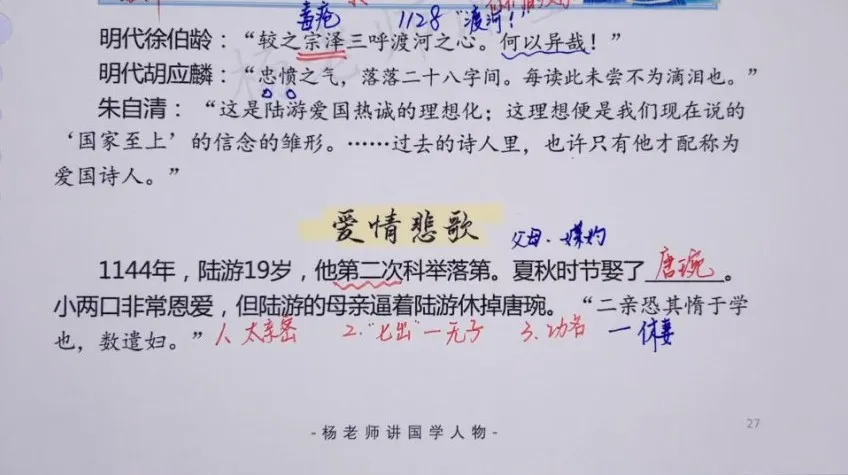 毒疮 1128 “渡河！”
明代徐伯龄：“较之宗泽三呼渡河之心。何以异哉！”
明代胡应麟：“忠愤之气，落落二十八字间。每读此未尝不为滴泪也。”
朱自清：“这是陆游爱国热诚的理想化；这理想便是我们现在说的
‘国家至上’的信念的雏形。……过去的诗人里，也许只有他才配称为
爱国诗人。”
爱情悲歌
父母·媒妁
1144年，陆游19岁，他第二次科举落第。夏秋时节娶了唐琬。
小两口非常恩爱，但陆游的母亲逼着陆游休掉唐琬。“二亲恐其惰于学
也，数遣妇。”1、太亲密 2、“七出”—无子 3、功名 —休妻
-杨老师讲国学人物-
27